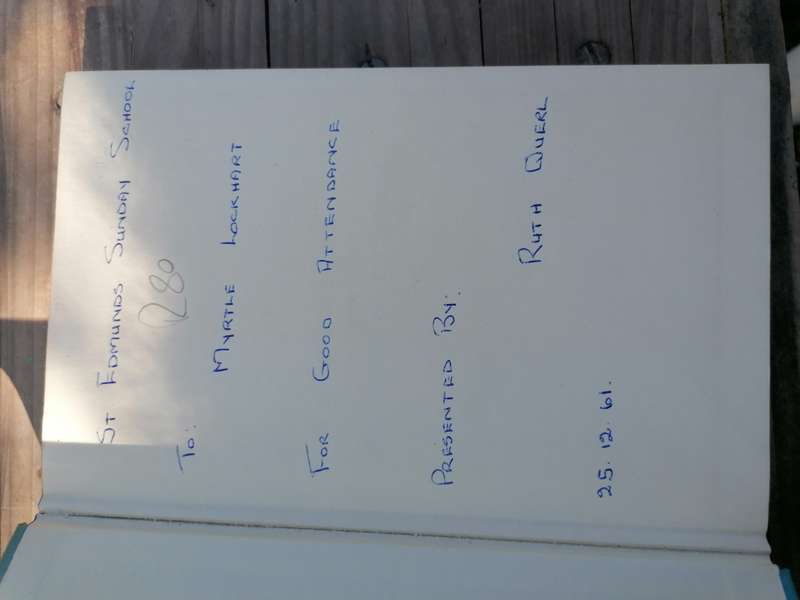 St Edmunds Sunday School
R80
To:
Myrtle Lockhart
For Good Attendance
Presented By:
Ruth Querl
25.12.61.